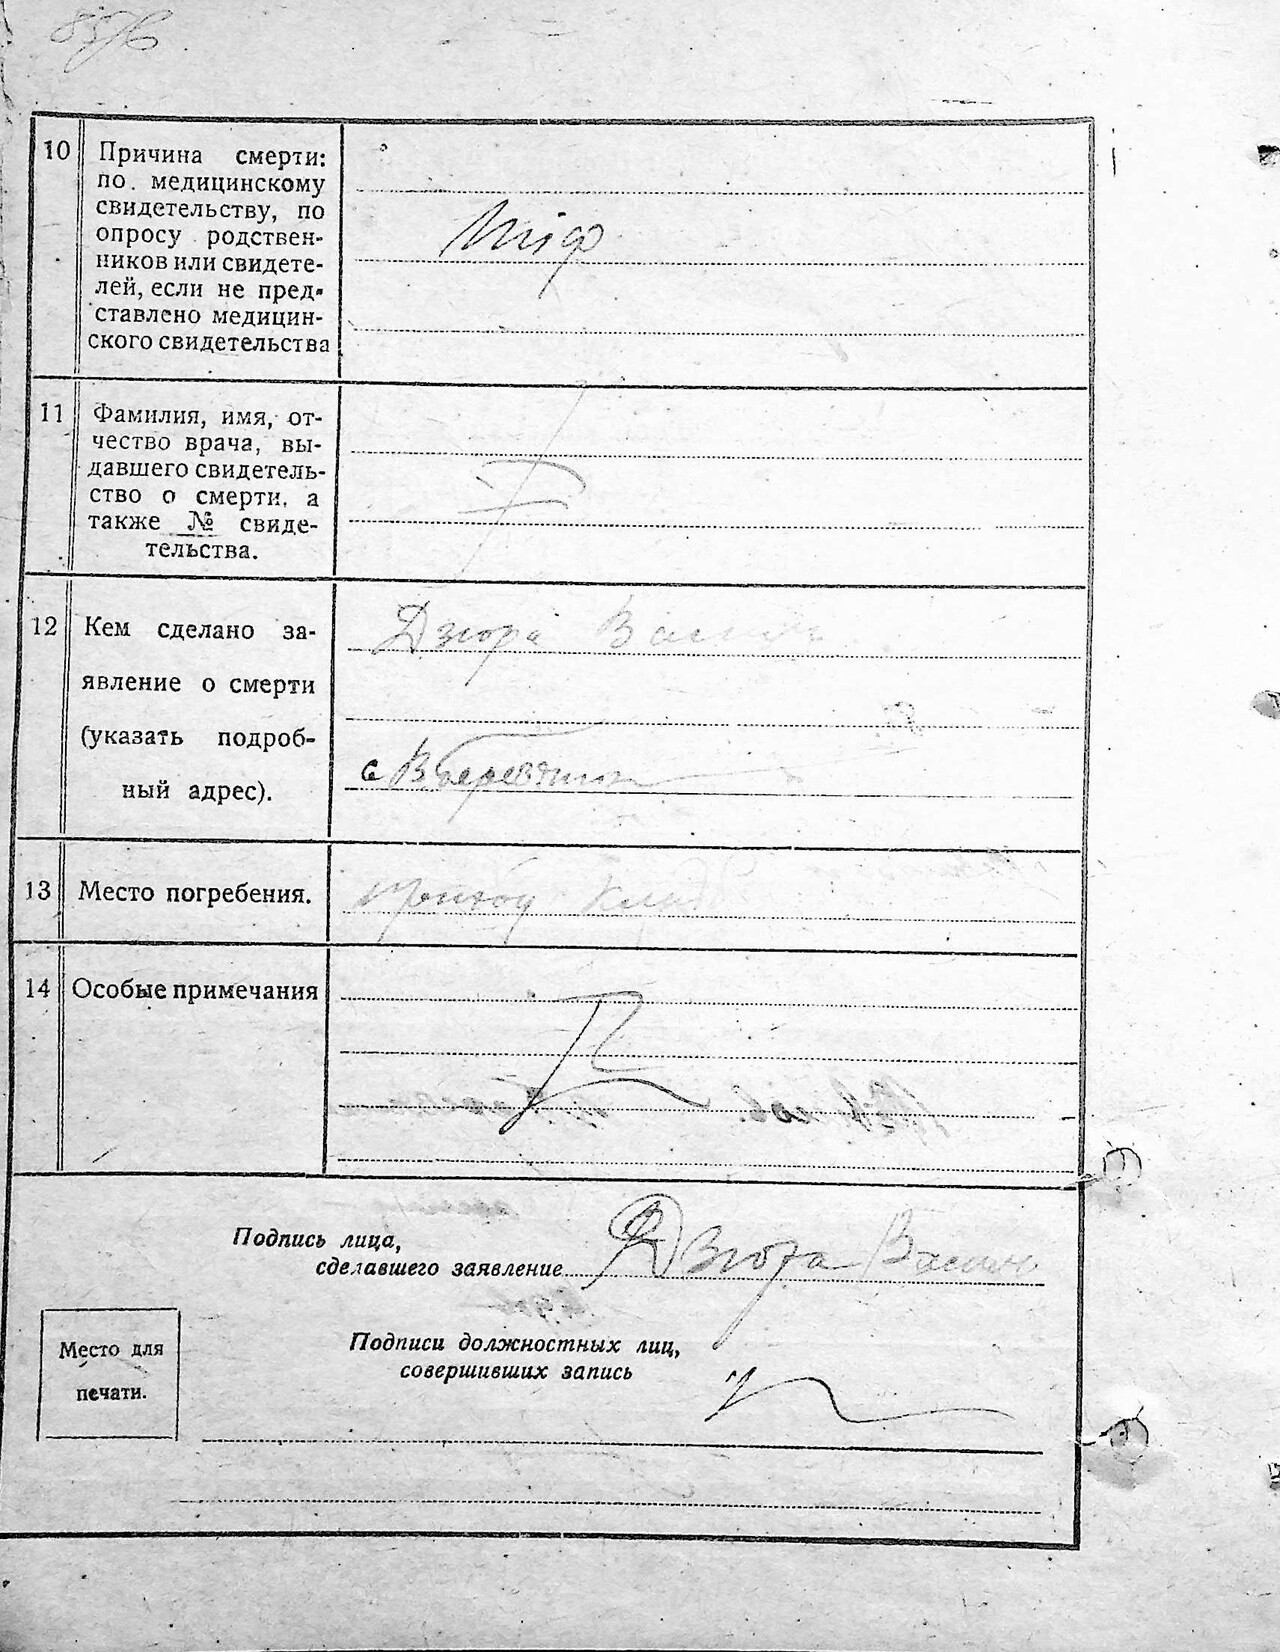 10 Причина смерти:
по. медицинскому
свидетельству, по
опросу родствен-
ников или свидете-
лей, если не пред-
ставлено медицин-
ского свидетельства
тіф
11 Фамилия, имя, от-
чество врача, вы-
давшего свидетель-
ство о смерти, а
также № свиде-
тельства.
12 Кем сделано за-
явление о смерти
(указать подроб-
ный адрес).
Дзюра Васил
с
13 Место погребения.
14 Особые примечания
Подпись лица,
сделавшего заявление Дзюра Васил
Подписи должностных лиц,
совершивших запись
Место для
печати.